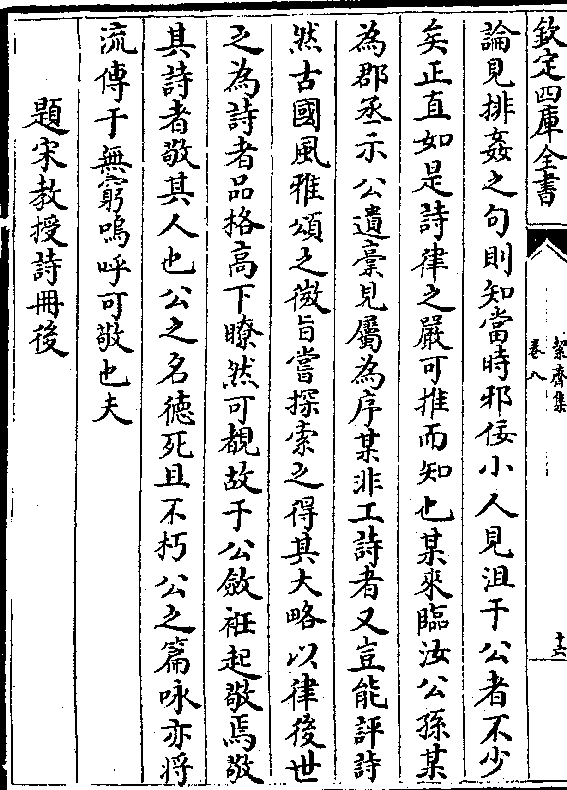 欽定四庫全書
絜齋集
卷八
十六
論見排姦之句則知當時邪佞小人見沮于公者不少
矣正直如是詩律之嚴可推而知也某來臨汝公孫某
為郡丞示公遺稾見屬為序某非工詩者又豈能評詩
然古國風雅頌之微旨嘗探索之得其大略以律後世
之為詩者品格高下瞭然可覩故于公斂衽起敬焉敬
其詩者敬其人也公之名德死且不朽公之篇咏亦将
流傳于無窮嗚呼可敬也夫
題宋教授詩冊後